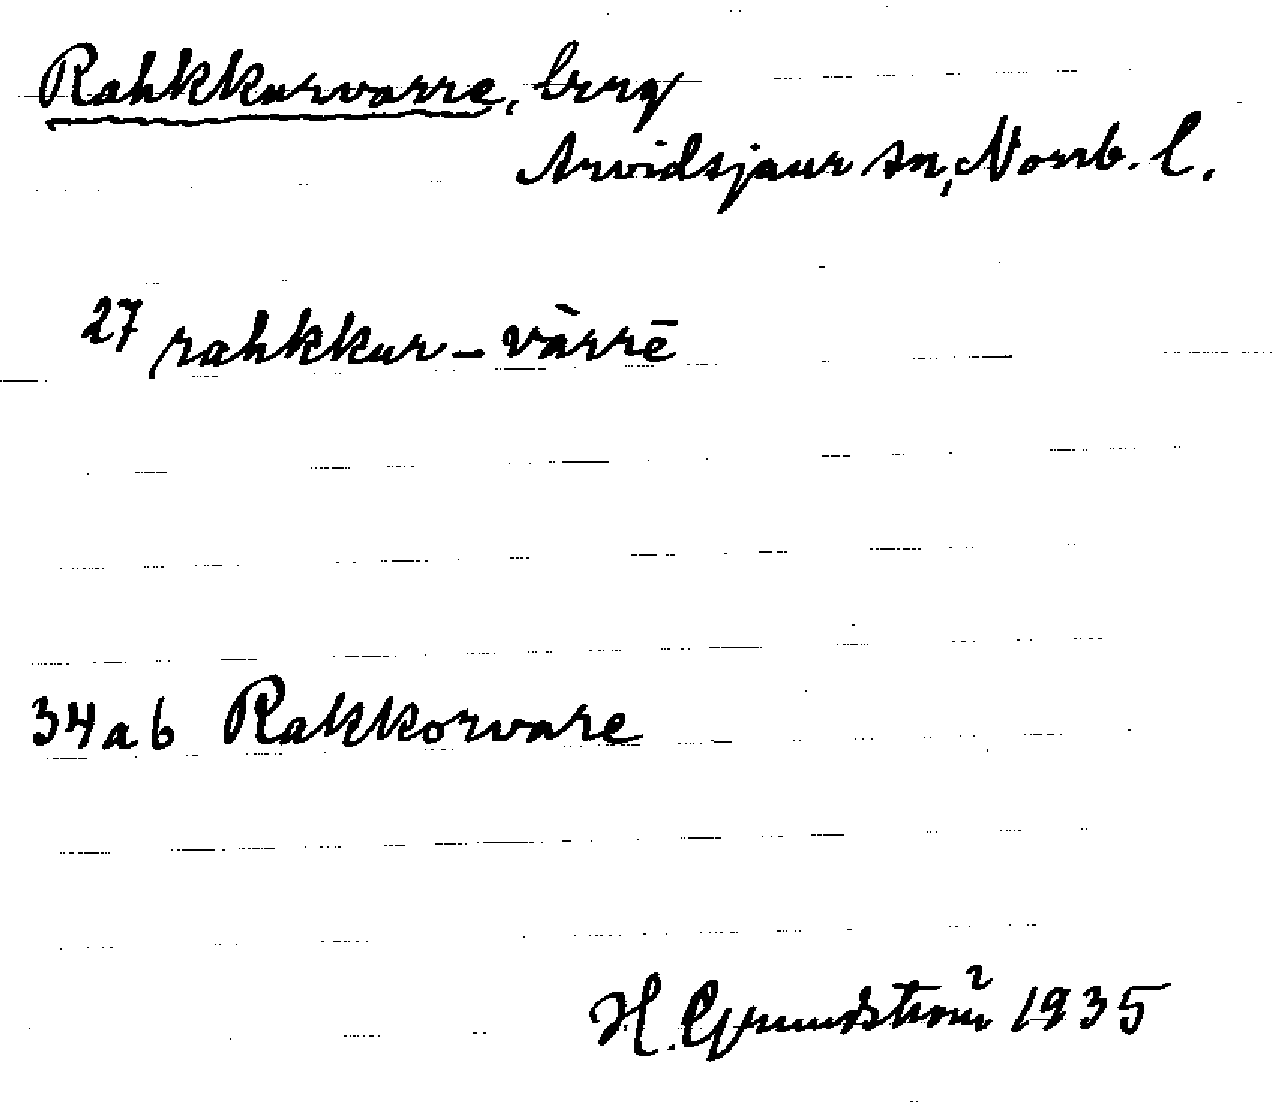 Rahkkurvarre, berg
Arvidsjaur sn, Norrb. l.
27 rahkkur-vàrrē
34ab Rakkorvare
H. Grundström 1935